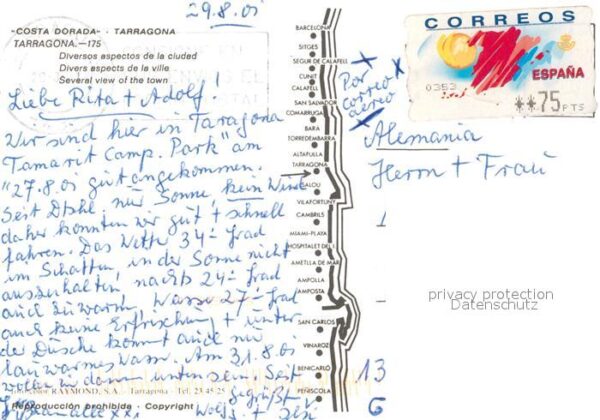 29.8.01
"COSTA DORADA" - TARRAGONA
TARRAGONA.—175
Diversos aspectos de la ciudad
Divers aspects de la ville
Several view of the town
Liebe Rita + Adolf!
Wir sind hier in Taragona
"Tamarit Camp. Park" am
27.8.01 gut angekommen.
Seit Dtshl. nur Sonne, kein Wind
daher konnten wir gut + schnell
fahren. Das Wetter 34 - Grad
im Schatten, in der Sonne nicht
auszuhalten, nachts 24 - Grad
auch zu warm, Wasser 27 - Grad
auch keine Erfrischung + unter
der Dusche kommt auch nur
lauwarmes Wass. Am 31.8.01
wollen wir dann unten sein. Seit
gegrüßt
alle
Wolfg. +
Color RAYMOND, S.A. - Tarragona - Tel. 23 45 25
Reproducción prohibida - Copyright
BARCELONA
SITGES
SEGUR DE CALAFELL
CUNIT
CALAFELL
SAN SALVADOR
COMARRUGA
BARA
TORREDEMBARRA
ALTAFULLA
TARRAGONA
SALOU
VILAFORTUNY
CAMBRILS
MIAMI-PLAYA
HOSPITALET DEL I.
AMETLLA DE MAR
AMPOLLA
AMPOSTA
SAN CARLOS
VINAROZ
BENICARLÓ
PEÑISCOLA
Por
correo
aéreo
CORREOS
ESPAÑA
0353
**75 PTS
Alemania
Herrn + Frau
privacy protection
Datenschutz
13
6